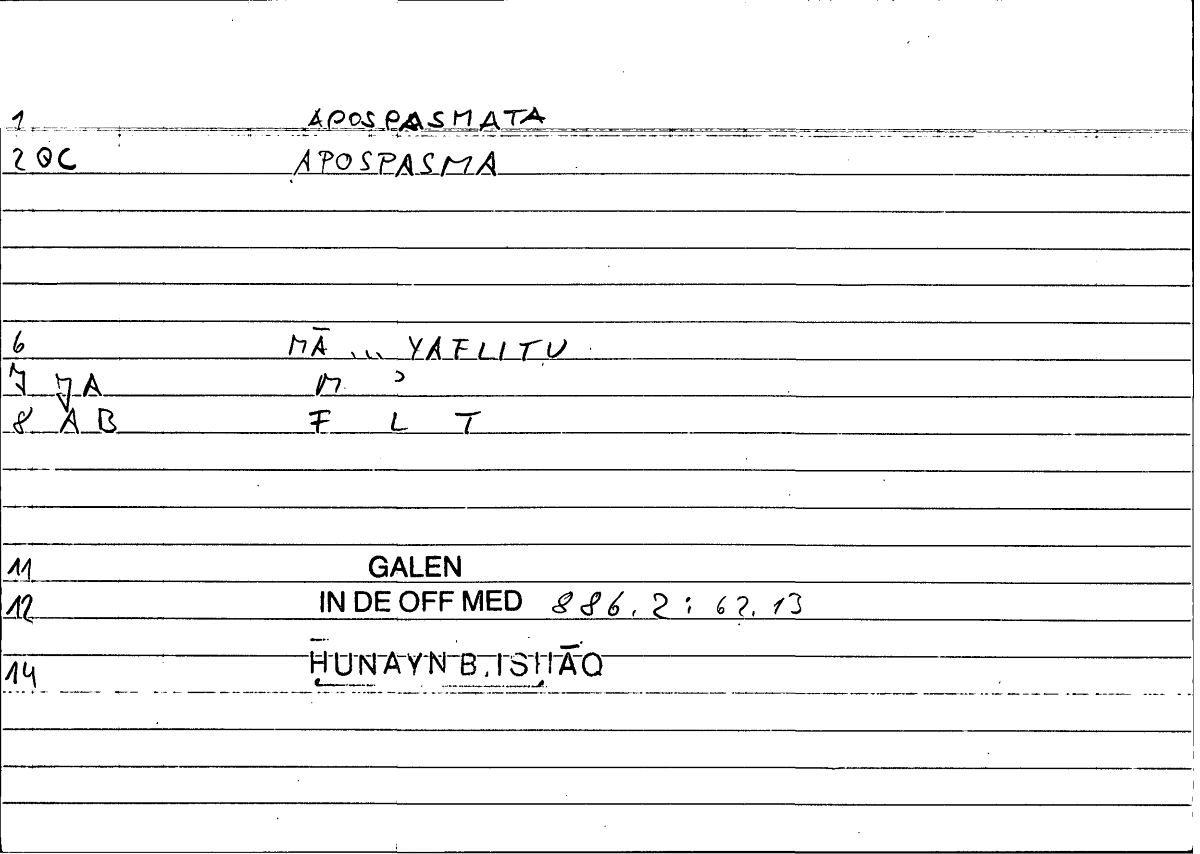 1 APOSPASMATA
2 QC APOSPASMA
6 MĀ ... YAFLITU
7 JA M ʾ
8 AB F L T
11 GALEN
12 IN DE OFF MED 886.2 : 62.13
14 ḤUNAYN B. ISḤĀQ